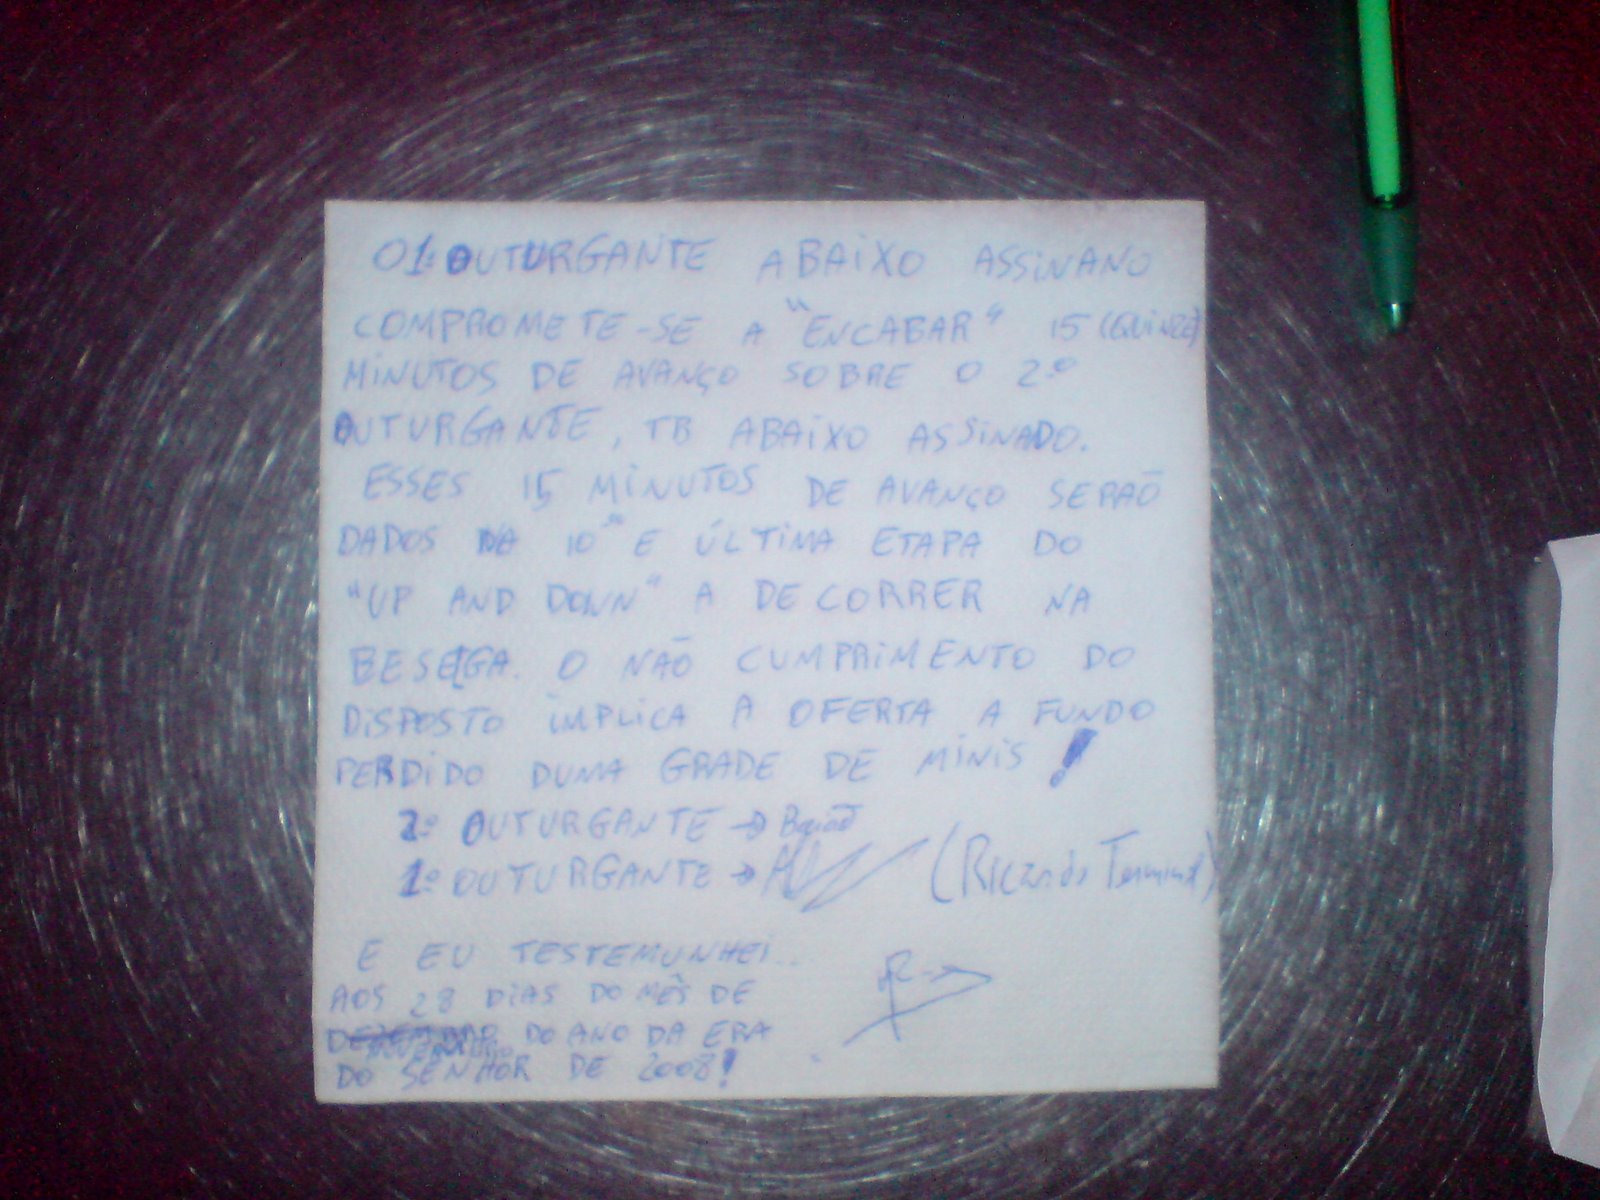 O 1º OUTURGANTE ABAIXO ASSINANO
COMPROMETE-SE A "ENCABAR" 15 (QUINZE)
MINUTOS DE AVANÇO SOBRE O 2º
OUTURGANTE, TB ABAIXO ASSINADO.
ESSES 15 MINUTOS DE AVANÇO SERÃO
DADOS NA 10ª E ÚLTIMA ETAPA DO
"UP AND DOWN" A DECORRER NA
O NÃO CUMPRIMENTO DO
DISPOSTO IMPLICA A OFERTA A FUNDO
PERDIDO DUMA GRADE DE MINIS!
2º OUTURGANTE →
1º OUTURGANTE → (Ricardo
E EU TESTEMUNHEI..
AOS 28 DIAS DO MÊS DE
DO ANO DA ERA
DO SENHOR DE 2008!